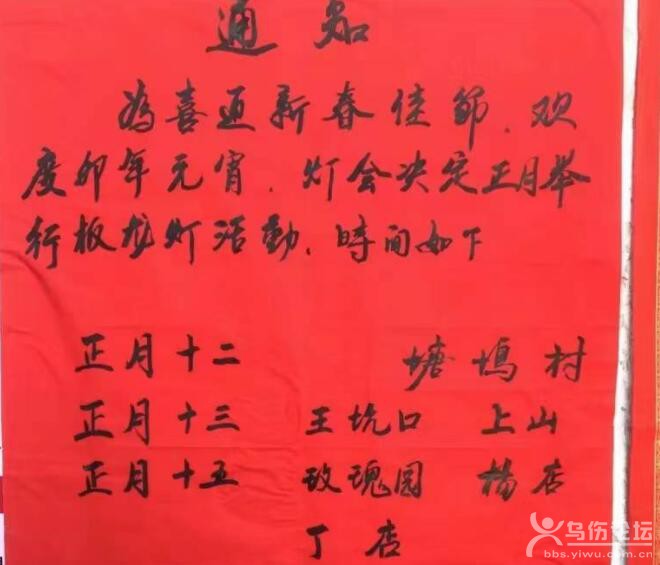 通知
为喜迎新春佳節、欢
度卯年元宵、灯会决定正月举
行板龙灯活動、時间如下
正月十二 塘塢村
正月十三 王坑口 上山
正月十五 玫瑰园 楊店
丁店
乌伤论坛
bbs.yiwu.com.cn